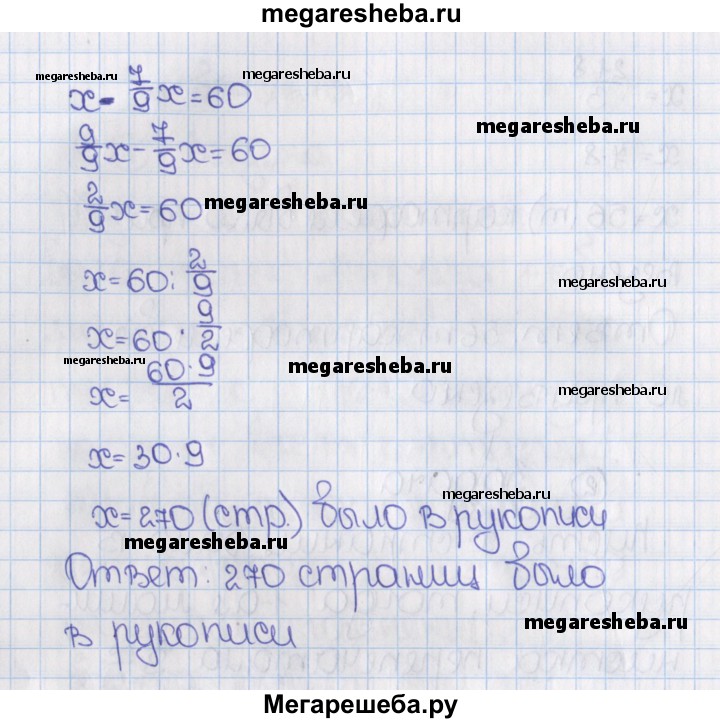 megaresheba.ru
megaresheba.ru megaresheba.ru
x - 7/9 x = 60
megaresheba.ru
9/9 x - 7/9 x = 60
2/9 x = 60 megaresheba.ru
x = 60 : 2/9 megaresheba.ru
x = 60 · 9/2
megaresheba.ru megaresheba.ru
x = 60 · 9/2
megaresheba.ru
x = 30 · 9
megaresheba.ru
x = 270 (стр.) было в рукописи
megaresheba.ru
Ответ: 270 страниц было
megaresheba.ru
в рукописи
Мегарешеба.ру